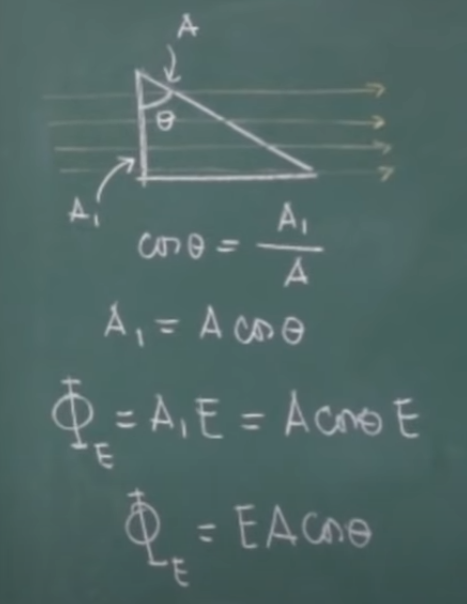 A
θ
A₁
cosθ = A₁/A
A₁ = A cosθ
Φ_E = A₁E = A cosθ E
Φ_E = EA cosθ